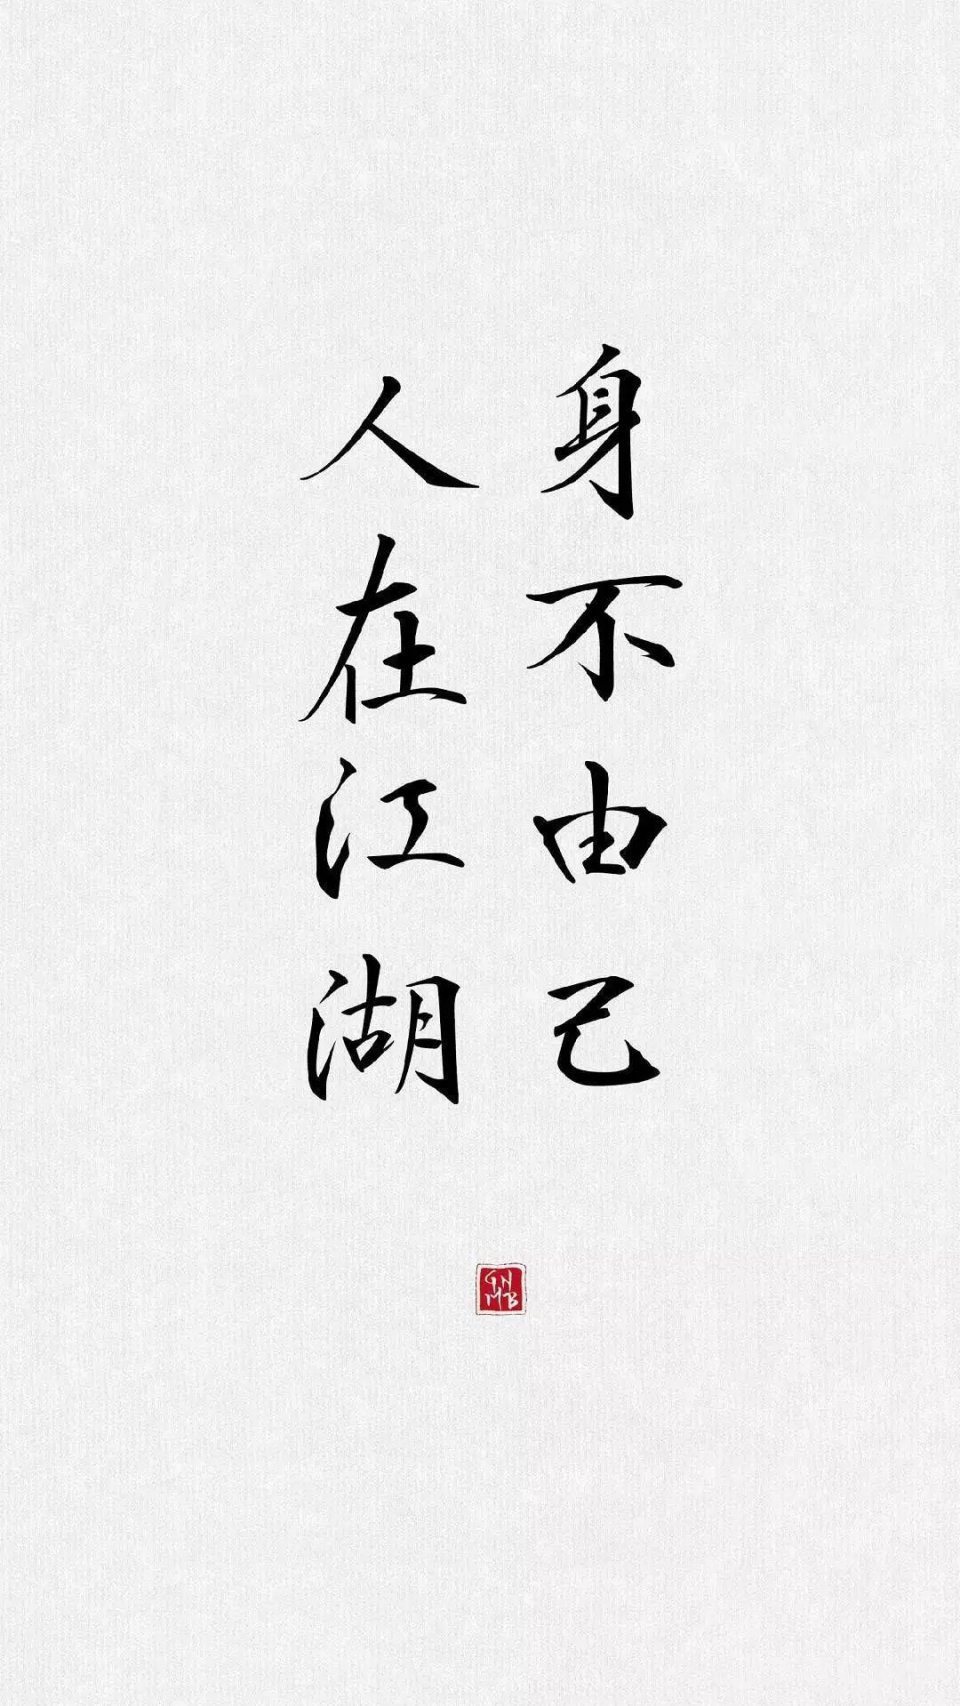 人在江湖
身不由己
GN
MB